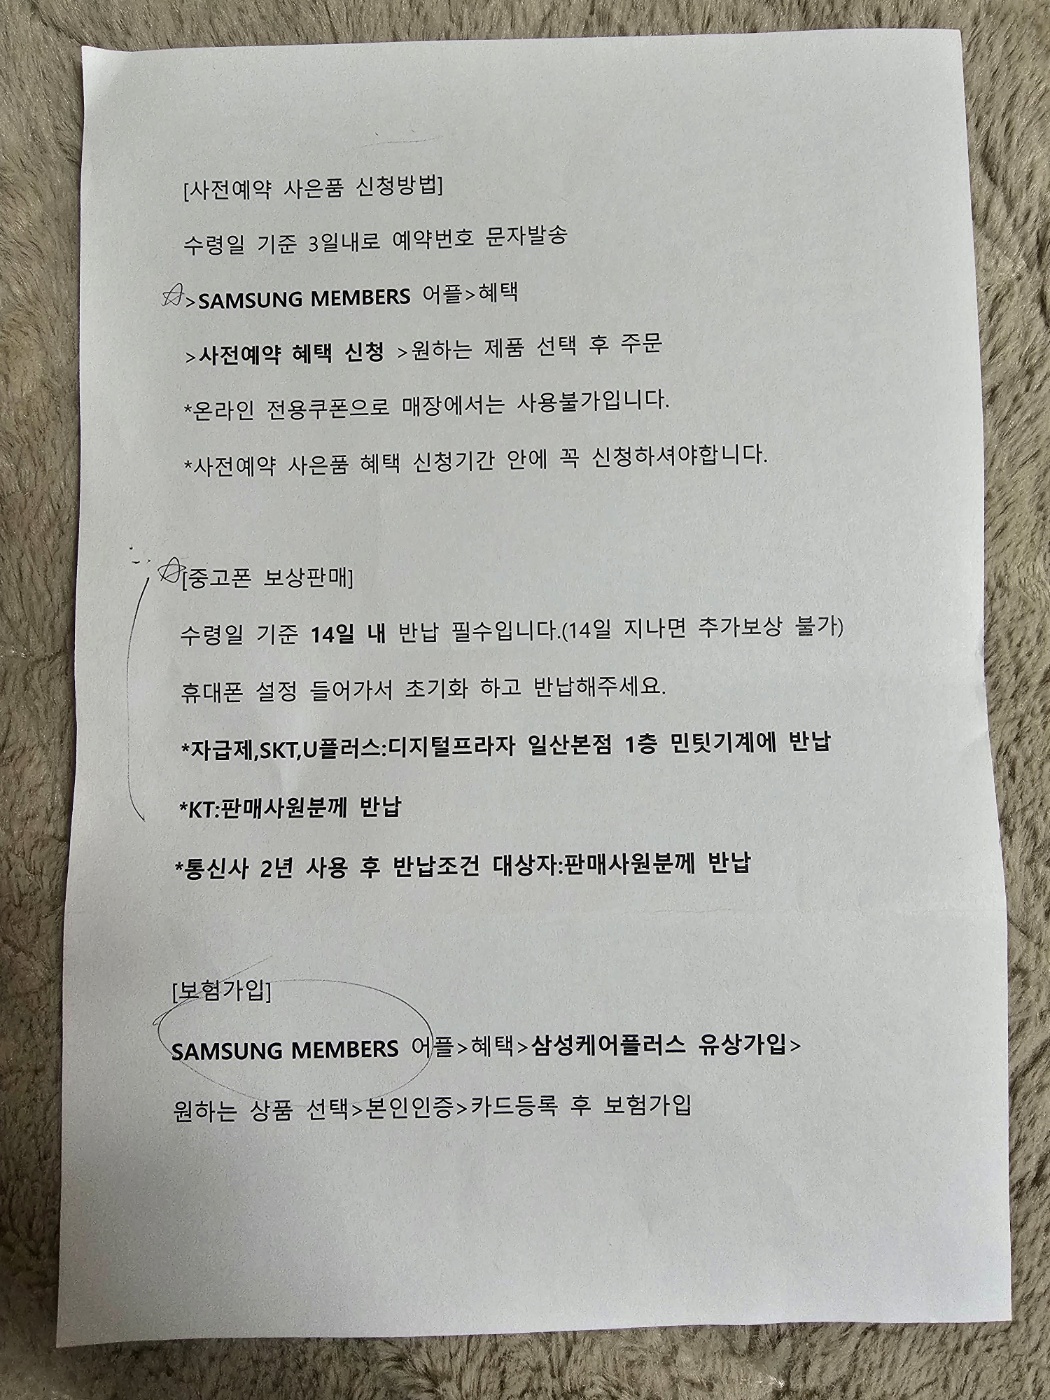 [사전예약 사은품 신청방법]
수령일 기준 3일내로 예약번호 문자발송
>SAMSUNG MEMBERS 어플>혜택
>사전예약 혜택 신청 >원하는 제품 선택 후 주문
*온라인 전용쿠폰으로 매장에서는 사용불가입니다.
*사전예약 사은품 혜택 신청기간 안에 꼭 신청하셔야합니다.
[중고폰 보상판매]
수령일 기준 14일 내 반납 필수입니다.(14일 지나면 추가보상 불가)
휴대폰 설정 들어가서 초기화 하고 반납해주세요.
*자급제,SKT,U플러스:디지털프라자 일산본점 1층 민팃기계에 반납
*KT:판매사원분께 반납
*통신사 2년 사용 후 반납조건 대상자:판매사원분께 반납
[보험가입]
SAMSUNG MEMBERS 어플>혜택>삼성케어플러스 유상가입>
원하는 상품 선택>본인인증>카드등록 후 보험가입